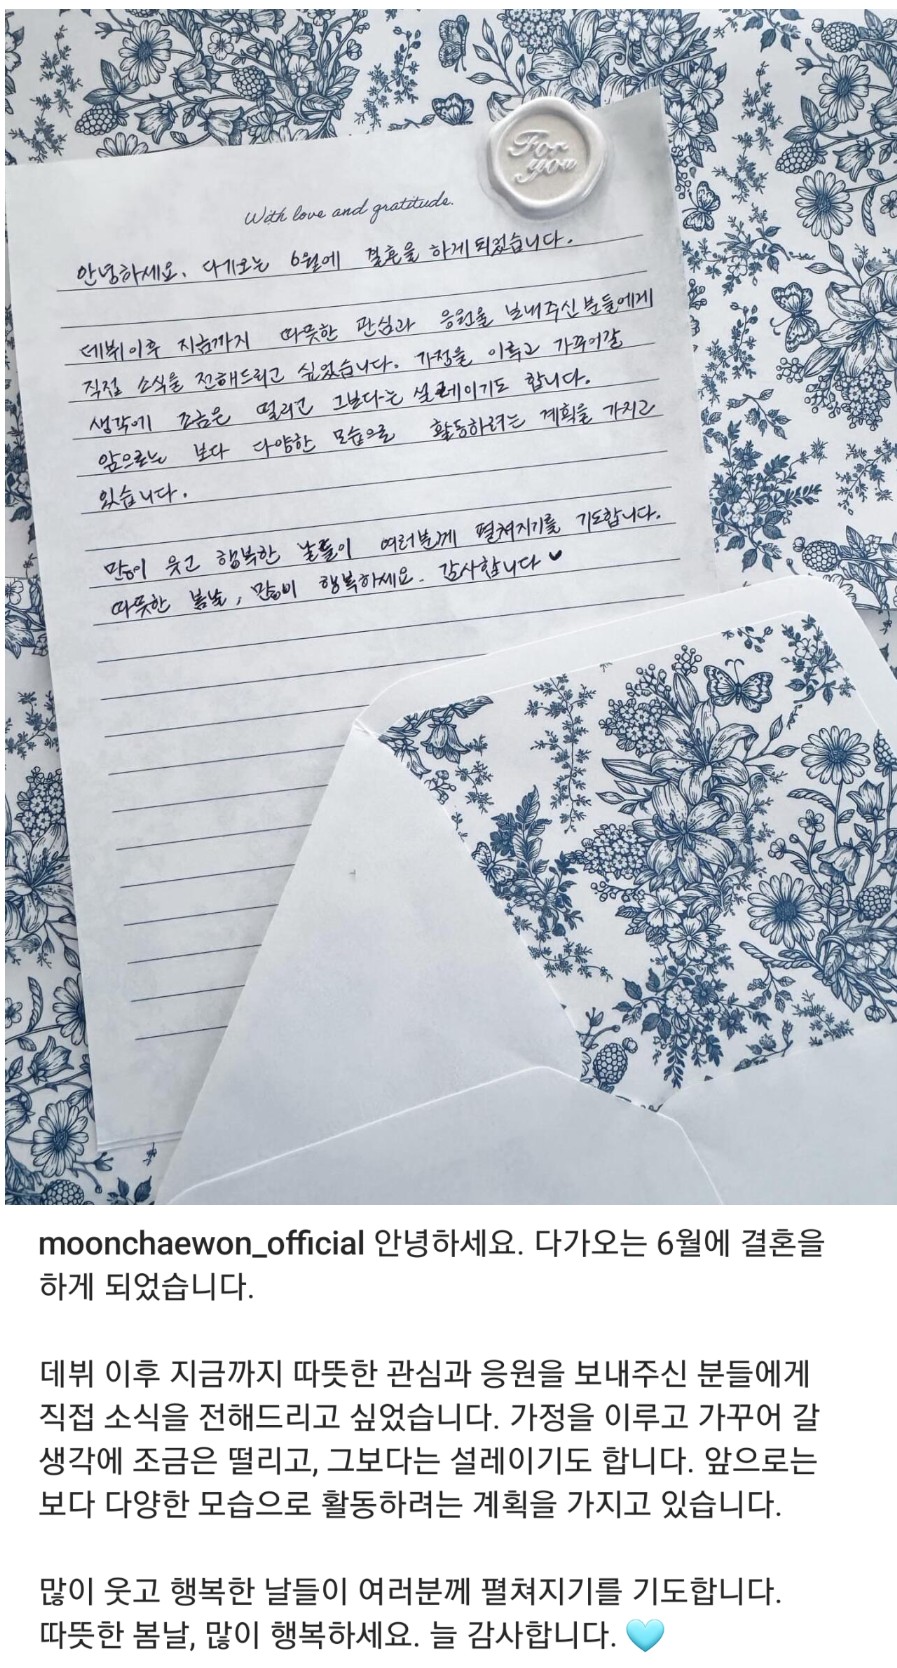 For
you
With love and gratitude.
안녕하세요. 다가오는 6월에 결혼을 하게 되었습니다.
데뷔 이후 지금까지 따뜻한 관심과 응원을 보내주신 분들에게
직접 소식을 전해드리고 싶었습니다. 가정을 이루고 가꾸어갈
생각에 조금은 떨리고 그보다는 설레이기도 합니다.
앞으로는 보다 다양한 모습으로 활동하려는 계획을 가지고
있습니다.
많이 웃고 행복한 날들이 여러분께 펼쳐지기를 기도합니다.
따뜻한 봄날, 많이 행복하세요. 감사합니다 ♥
moonchaewon_official 안녕하세요. 다가오는 6월에 결혼을
하게 되었습니다.
데뷔 이후 지금까지 따뜻한 관심과 응원을 보내주신 분들에게
직접 소식을 전해드리고 싶었습니다. 가정을 이루고 가꾸어 갈
생각에 조금은 떨리고, 그보다는 설레이기도 합니다. 앞으로는
보다 다양한 모습으로 활동하려는 계획을 가지고 있습니다.
많이 웃고 행복한 날들이 여러분께 펼쳐지기를 기도합니다.
따뜻한 봄날, 많이 행복하세요. 늘 감사합니다. 🩵